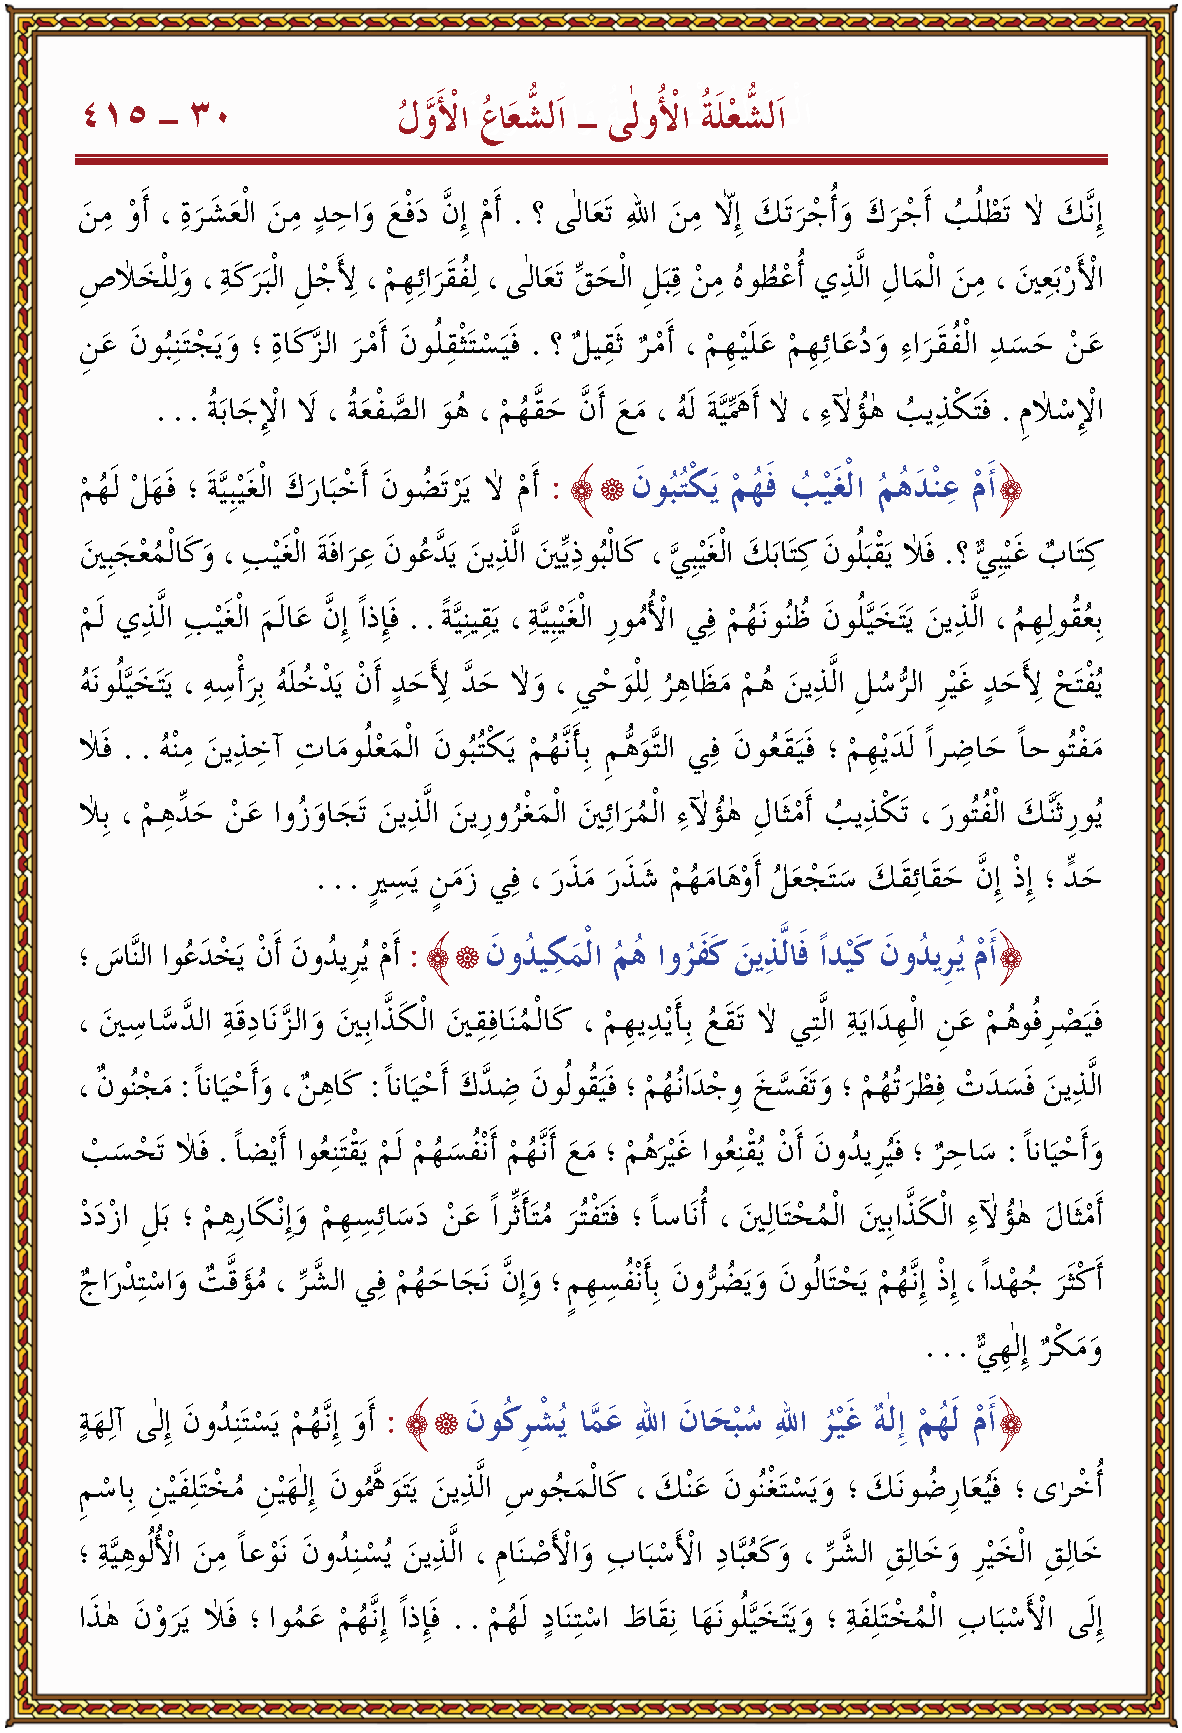 اَلشُّعْلَةُ الْأُولٰى – اَلشُّعَاعُ الْأَوَّلُ ٣٠ – ٤١٥
إِنَّكَ لَا تَطْلُبُ أَجْرَكَ وَأُجْرَتَكَ إِلَّا مِنَ اللهِ تَعَالٰى ؟ . أَمْ إِنَّ دَفْعَ وَاحِدٍ مِنَ الْعَشَرَةِ ، أَوْ مِنَ
الْأَرْبَعِينَ ، مِنَ الْمَالِ الَّذِي أُعْطُوهُ مِنْ قِبَلِ الْحَقِّ تَعَالٰى ، لِفُقَرَائِهِمْ ، لِأَجْلِ الْبَرَكَةِ ، وَلِلْخَلَاصِ
عَنْ حَسَدِ الْفُقَرَاءِ وَدُعَائِهِمْ عَلَيْهِمْ ، أَمْرٌ ثَقِيلٌ ؟ . فَيَسْتَثْقِلُونَ أَمْرَ الزَّكَاةِ ؛ وَيَجْتَنِبُونَ عَنِ
الْإِسْلَامِ . فَتَكْذِيبُ هٰؤُلَآءِ ، لَا أَهَمِّيَّةَ لَهُ ، مَعَ أَنَّ حَقَّهُمْ ، هُوَ الصَّفْعَةُ ، لَا الْإِجَابَةُ . . .
﴿أَمْ عِنْدَهُمُ الْغَيْبُ فَهُمْ يَكْتُبُونَ ۞﴾ : أَمْ لَا يَرْتَضُونَ أَخْبَارَكَ الْغَيْبِيَّةَ ؛ فَهَلْ لَهُمْ
كِتَابٌ غَيْبِيٌّ ؟. فَلَا يَقْبَلُونَ كِتَابَكَ الْغَيْبِيَّ ، كَالْبُوذِيِّينَ الَّذِينَ يَدَّعُونَ عِرَافَةَ الْغَيْبِ ، وَكَالْمُعْجَبِينَ
بِعُقُولِهِمُ ، الَّذِينَ يَتَخَيَّلُونَ ظُنُونَهُمْ فِي الْأُمُورِ الْغَيْبِيَّةِ ، يَقِينِيَّةً . . فَإِذاً إِنَّ عَالَمَ الْغَيْبِ الَّذِي لَمْ
يُفْتَحْ لِأَحَدٍ غَيْرِ الرُّسُلِ الَّذِينَ هُمْ مَظَاهِرُ لِلْوَحْيِ ، وَلَا حَدَّ لِأَحَدٍ أَنْ يَدْخُلَهُ بِرَأْسِهِ ، يَتَخَيَّلُونَهُ
مَفْتُوحاً حَاضِراً لَدَيْهِمْ ؛ فَيَقَعُونَ فِي التَّوَهُّمِ بِأَنَّهُمْ يَكْتُبُونَ الْمَعْلُومَاتِ آخِذِينَ مِنْهُ . . فَلَا
يُورِثَنَّكَ الْفُتُورَ ، تَكْذِيبُ أَمْثَالِ هٰؤُلَآءِ الْمُرَائِينَ الْمَغْرُورِينَ الَّذِينَ تَجَاوَزُوا عَنْ حَدِّهِمْ ، بِلَا
حَدٍّ ؛ إِذْ إِنَّ حَقَائِقَكَ سَتَجْعَلُ أَوْهَامَهُمْ شَذَرَ مَذَرَ ، فِي زَمَنٍ يَسِيرٍ . . .
﴿أَمْ يُرِيدُونَ كَيْداً فَالَّذِينَ كَفَرُوا هُمُ الْمَكِيدُونَ ۞﴾ : أَمْ يُرِيدُونَ أَنْ يَخْدَعُوا النَّاسَ ؛
فَيَصْرِفُوهُمْ عَنِ الْهِدَايَةِ الَّتِي لَا تَقَعُ بِأَيْدِيهِمْ ، كَالْمُنَافِقِينَ الْكَذَّابِينَ وَالزَّنَادِقَةِ الدَّسَّاسِينَ ،
الَّذِينَ فَسَدَتْ فِطْرَتُهُمْ ؛ وَتَفَسَّخَ وِجْدَانُهُمْ ؛ فَيَقُولُونَ ضِدَّكَ أَحْيَاناً : كَاهِنٌ ، وَأَحْيَاناً : مَجْنُونٌ ،
وَأَحْيَاناً : سَاحِرٌ ؛ فَيُرِيدُونَ أَنْ يُقْنِعُوا غَيْرَهُمْ ؛ مَعَ أَنَّهُمْ أَنْفُسَهُمْ لَمْ يَقْتَنِعُوا أَيْضاً . فَلَا تَحْسَبْ
أَمْثَالَ هٰؤُلَآءِ الْكَذَّابِينَ الْمُحْتَالِينَ ، أُنَاساً ؛ فَتَفْتُرَ مُتَأَثِّراً عَنْ دَسَائِسِهِمْ وَإِنْكَارِهِمْ ؛ بَلِ ازْدَدْ
أَكْثَرَ جُهْداً ، إِذْ إِنَّهُمْ يَحْتَالُونَ وَيَضُرُّونَ بِأَنْفُسِهِمٍ ؛ وَإِنَّ نَجَاحَهُمْ فِي الشَّرِّ ، مُؤَقَّتٌ وَاسْتِدْرَاجٌ
وَمَكْرٌ إِلٰهِيٌّ . . .
﴿أَمْ لَهُمْ إِلٰهٌ غَيْرُ اللهِ سُبْحَانَ اللهِ عَمَّا يُشْرِكُونَ ۞﴾ : أَوَ إِنَّهُمْ يَسْتَنِدُونَ إِلٰى آلِهَةٍ
أُخْرٰى ؛ فَيُعَارِضُونَكَ ؛ وَيَسْتَغْنُونَ عَنْكَ ، كَالْمَجُوسِ الَّذِينَ يَتَوَهَّمُونَ إِلٰهَيْنِ مُخْتَلِفَيْنِ بِاسْمِ
خَالِقِ الْخَيْرِ وَخَالِقِ الشَّرِّ ، وَكَعُبَّادِ الْأَسْبَابِ وَالْأَصْنَامِ ، الَّذِينَ يُسْنِدُونَ نَوْعاً مِنَ الْأُلُوهِيَّةِ ؛
إِلَى الْأَسْبَابِ الْمُخْتَلِفَةِ ؛ وَيَتَخَيَّلُونَهَا نِقَاطَ اسْتِنَادٍ لَهُمْ . . فَإِذاً إِنَّهُمْ عَمُوا ؛ فَلَا يَرَوْنَ هٰذَا